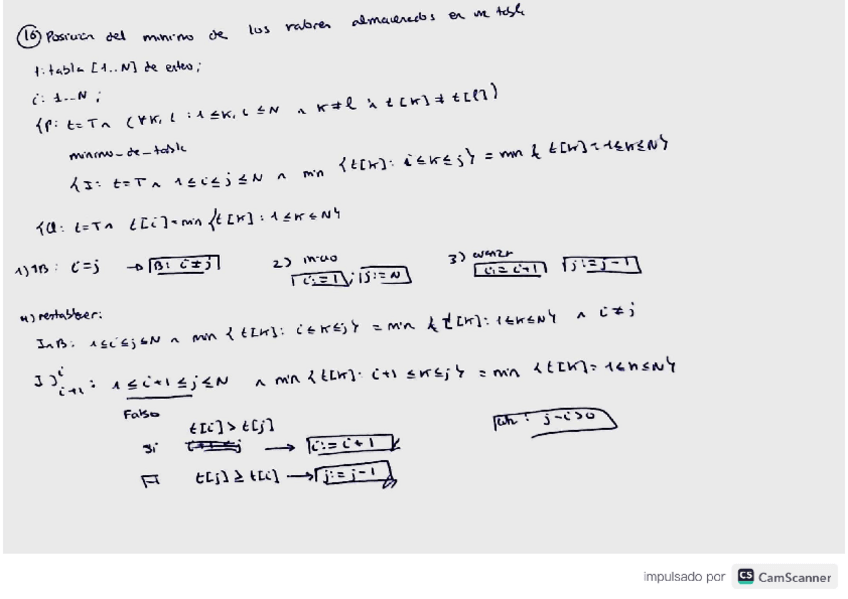 ⑯ Posición del minimo de los valores almacenados en una tabla
t: tabla [1..N] de entero;
i: 1..N;
{P: t=T ∧ (∀k, l : 1≤k, l ≤N ∧ k≠l ∧ t[k] ≠ t[l])
minimo_de_tabla
{I: t=T ∧ 1≤i≤j≤N ∧ min {t[k]: i≤k≤j} = min {t[k]: 1≤k≤N}
{Q: t=T ∧ t[i]=min {t[k]: 1≤k≤N}
1) ¬B: i=j → B: i≠j 2) inicio i:=1; j:=N 3) avanzar i:=i+1 j:=j-1
4) restablecer:
I∧B: 1≤i≤j≤N ∧ min {t[k]: i≤k≤j} = min {t[k]: 1≤k≤N} ∧ i≠j
I)ⁱᵢ₊₁: 1≤i+1≤j≤N ∧ min {t[k]: i+1≤k≤j} = min {t[k]: 1≤k≤N}
Falso
t[i]>t[j]
si → i:=i+1 j-i>0
t[j]≥t[i] → j:=j-1
impulsado por CS CamScanner